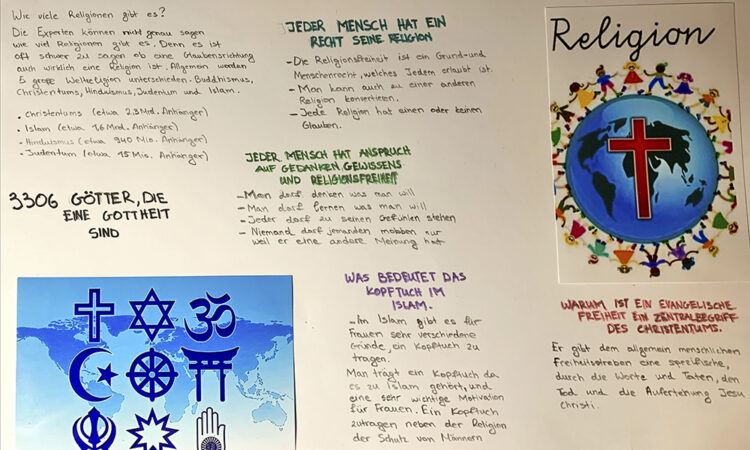 Wie viele Religionen gibt es?
Die Experten können nicht genau sagen
wie viel Religionen gibt es. Denn es ist
oft schwer zu sagen ob eine Glaubensrichtung
auch wirklich eine Religion ist. Allgemein werden
5 große Weltreligion unterschieden, Buddhismus,
Christentums, Hinduismus, Judentum und Islam.
• Christentums (etwa 2.3 Mrd. Anhänger)
• Islam (etwa 1.6 Mrd. Anhänger)
• Hinduismus (etwa 940 Mio. Anhänger)
• Judentum (etwa 15 Mio. Anhänger)
3306 GÖTTER, DIE
EINE GOTTHEIT
SIND
JEDER MENSCH HAT EIN
RECHT SEINE RELIGION
- Die Religionsfreiheit ist ein Grund-und
Menschenrecht, welches Jedem erlaubt ist.
- Man kann auch zu einer anderen
Religion konvertieren.
- Jede Religion hat einen oder keinen
Glauben.
JEDER MENSCH HAT ANSPRUCH
AUF GEDANKEN, GEWISSENS
UND RELIGIONSFREIHEIT
- Man darf denken was man will
- Man darf lernen was man will
- Jeder darf zu seinen Gefühlen stehen
- Niemand darf jemanden mobben nur
weil er eine andere Meinung hat
WAS BEDEUTET DAS
KOPFTUCH IM
ISLAM.
- Im Islam, gibt es für
Frauen sehr verschiedene
Gründe, ein Kopftuch zu
tragen.
Man trägt ein Kopftuch da
es zu Islam gehört, und
eine sehr wichtige Motivation
für Frauen. Ein Kopftuch
zutragen neben der Religion
der Schutz von Männern
Religion
WARUM IST EIN EVANGELISCHE
FREIHEIT EIN ZENTRALBEGRIFF
DES CHRISTENTUMS.
Er gibt dem allgemein menschlichen
Freiheitsstreben eine spezifische,
durch die Worte und Taten, den
Tod und die Auferstehung Jesu
Christi.